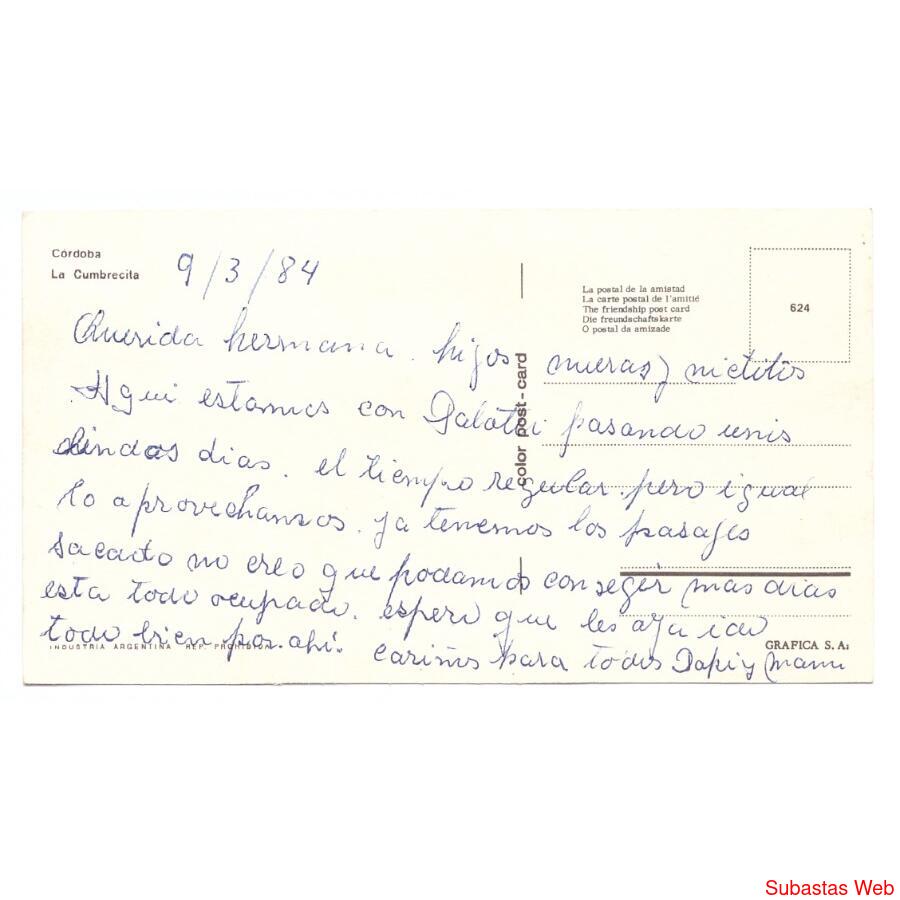 Córdoba
La Cumbrecita
9/3/84
La postal de la amistad
La carte postal de l'amitié
The friendship post card
Die freundschaftskarte
O postal da amizade
624
color post-card
Querida hermana. hijos nueras y nietitos
Aqui estamos con pasando unis
dias. el tiempo regular. pero igual
lo aprovechamos. ya tenemos los pasajes
sacado no creo que podamos conseger mas dias
esta todo ocupado. espero que les aya ido
todo bien por ahi.
cariños para todos Papi y Mami
INDUSTRIA ARGENTINA REP. PROHIBIDA
GRAFICA S.A.
Subastas Web